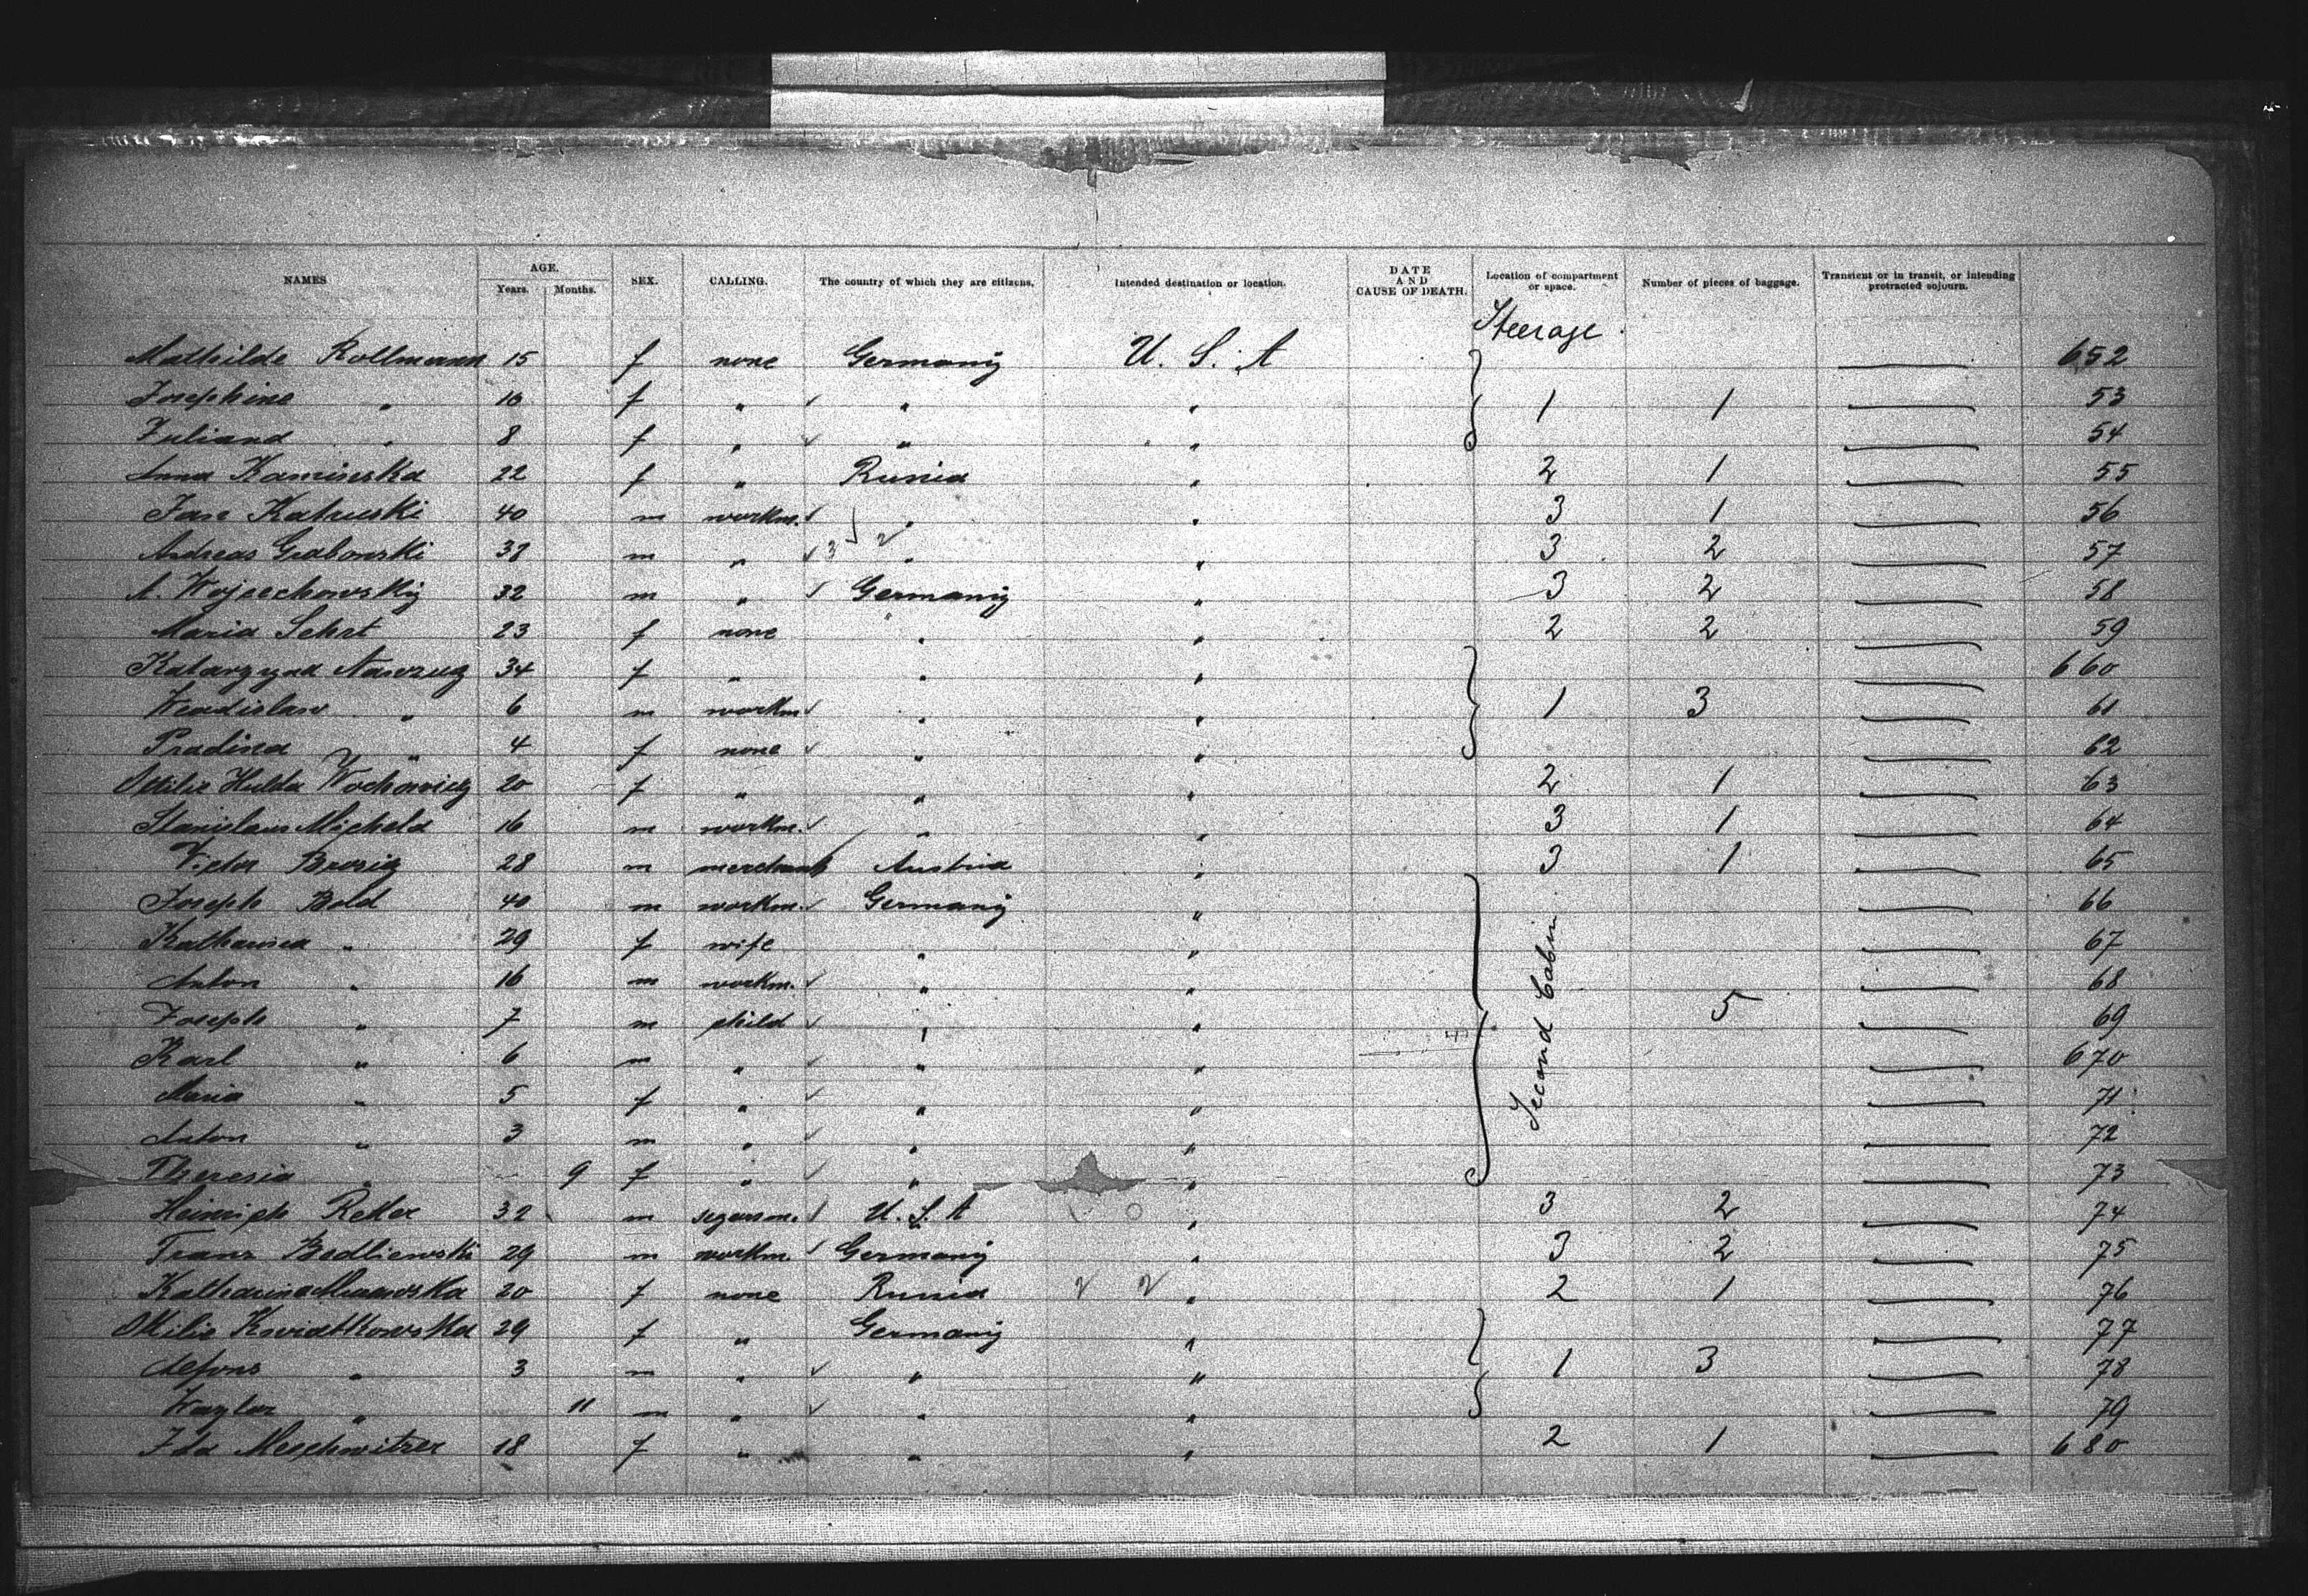 NAMES AGE. Years. Months. SEX. CALLING. The country of which they are citizens. Intended destination or location. DATE AND CAUSE OF DEATH. Location of compartment or space. Number of pieces of baggage. Transient or in transit, or intending protracted sojourn.
Steerage
Mathilde Rollmann 15 f none Germany U. S. A 652
Josephine " 10 f " " " 1 1 53
Juliand " 8 f " " " 54
Anna Kaminska 22 f " Russia " 2 1 55
Jan Katruski 40 m workm. " " 3 1 56
Andreas Grabowski 38 m " " " 3 2 57
A. Wojcechowsky 32 m " Germany " 3 2 58
Maria Sehrt 23 f none " " 2 2 59
Katarzyna 34 f " " " 660
Wladislaw " 6 m workm " " 1 3 61
Pradina " 4 f none " " 62
Ottilie Hulda Wochowicz 20 f " " " 2 1 63
Stanislaus Michela 16 m workm. " " 3 1 64
Victor Brosig 28 m merchant Austria " 3 1 65
Joseph Bold 40 m workm. Germany " 66
Katharina " 29 f wife " " 67
Anton " 16 m workm. " " Second Cabin 68
Joseph " 7 m child " " 5 69
Karl " 6 m " " " 670
Maria " 5 f " " " 71
Anton " 3 m " " " 72
Theresia " 9 f " " " 73
Heinrich Reker 32 m segarm. U. S. A " 3 2 74
Franz Bedliewski 29 m workm. Germany " 3 2 75
Katharina 20 f none Russia " 2 1 76
Ottilie Kwiatkowska 29 f " Germany " 77
Alfons " 3 m " " " 1 3 78
" 11 m " " " 79
Ida Meschwitzer 18 f " " " 2 1 680